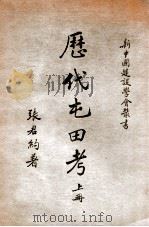 新中國建設學會叢書
歷代屯田考
上册
張君約著